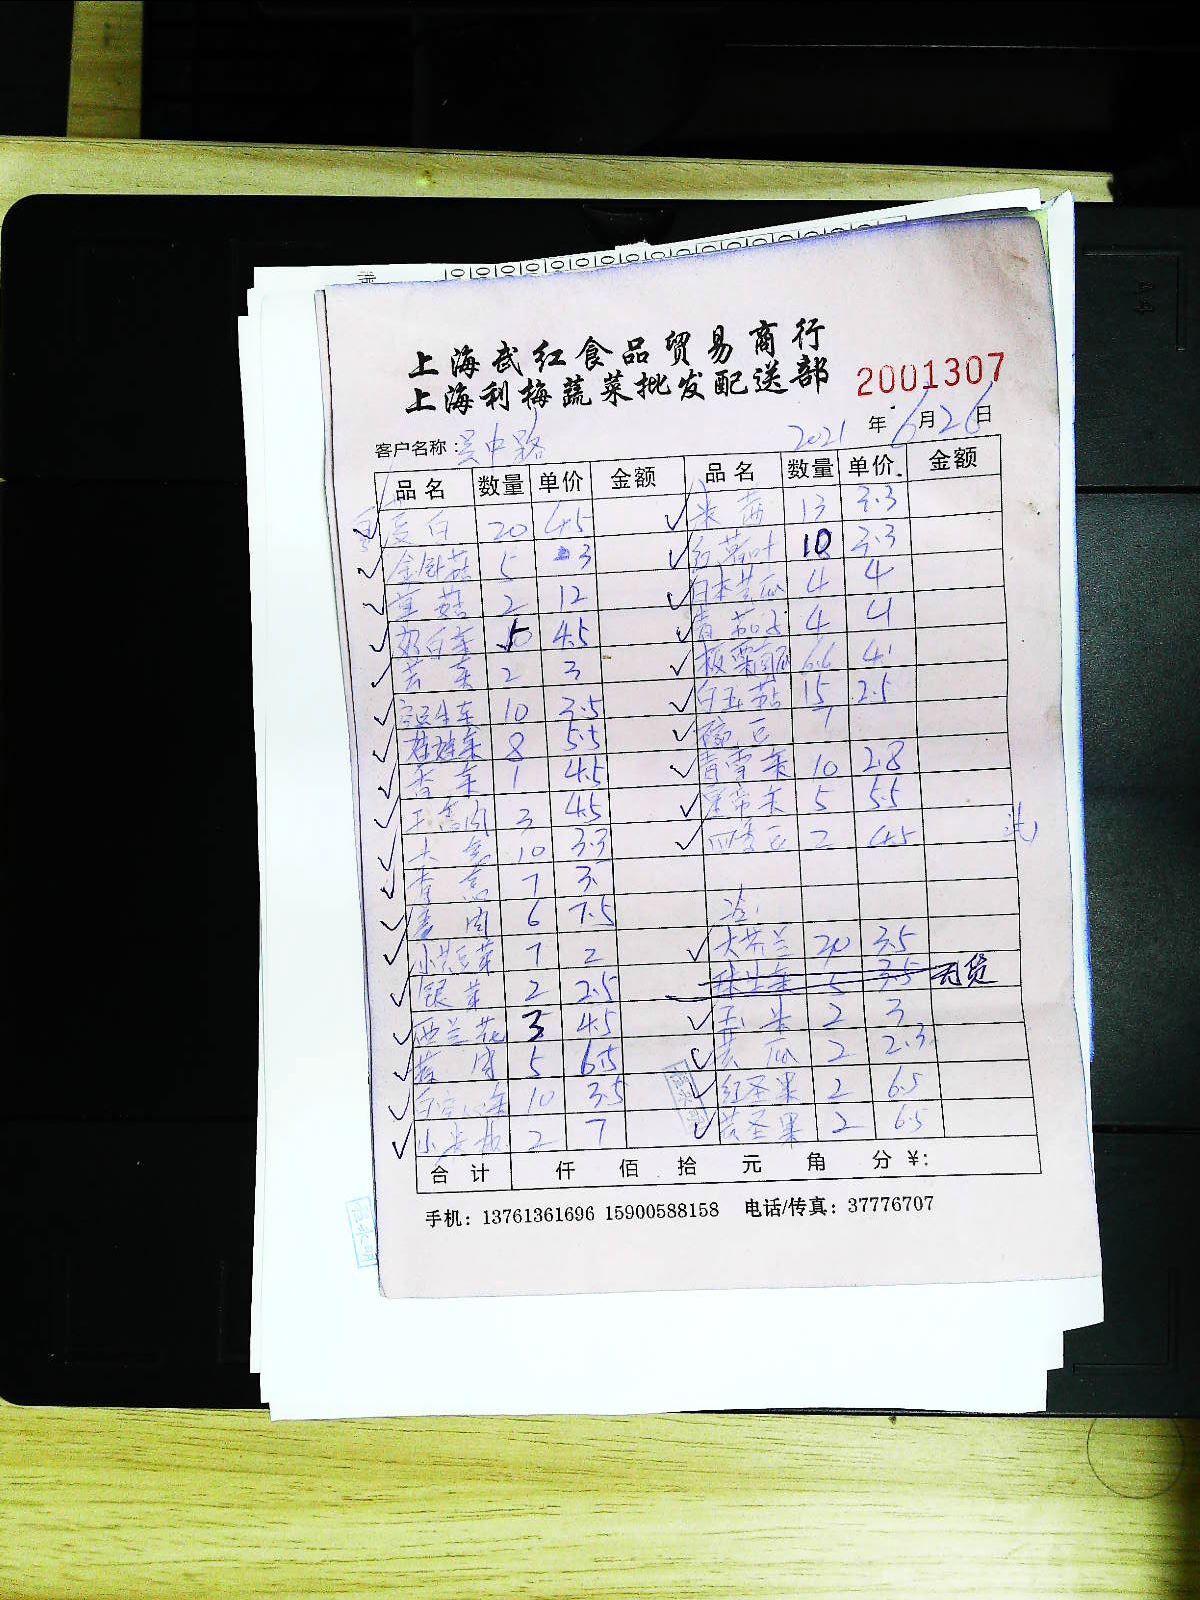 上海武红食品贸易商行
上海利梅蔬菜批发配送部
2001307
客户名称：吴中路 2021年6月26日
品名 数量 单价 金额 品名 数量 单价. 金额
茭白 20 4.5 米茜 13 3.3
金针菇 5 3 红薯叶 10 3.3
草菇 2 12 白本黄瓜 4 4
奶白菜 4.5 青茄子 4 4
2 3 板栗南瓜 6.6 4.
10 3.5 白玉菇 15 2.5
娃娃菜 8 5.5 豌豆 7
香菜 1 4.5 青雪菜 10 2.8
3 4.5 5 5.5
大葱 10 3.3 四季豆 2 4.5
香葱 7 3.
姜肉 6 7.5
7 2 大芥兰 20 3.5
银芽 2 2.5 球生菜 5 3.5 无货
西兰花 3 4.5 玉米 2 3
5 6.5 黄瓜 2 2.3
10 3.5 红圣果 2 6.5
小米椒 2 7 黄圣果 2 6.5
合计 仟 佰 拾 元 角 分 ¥:
手机：13761361696 15900588158 电话/传真：37776707